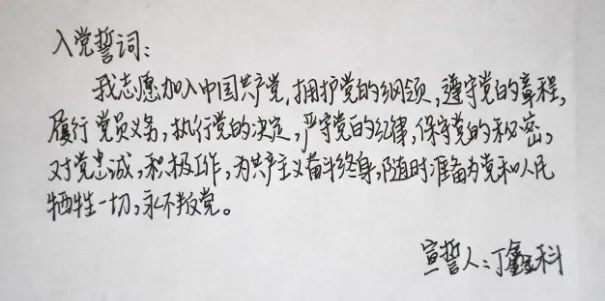 入党誓词：
我志愿加入中国共产党，拥护党的纲领，遵守党的章程，
履行党员义务，执行党的决定，严守党的纪律，保守党的秘密，
对党忠诚，积极工作，为共产主义奋斗终身，随时准备为党和人民
牺牲一切，永不叛党。
宣誓人：丁鑫科